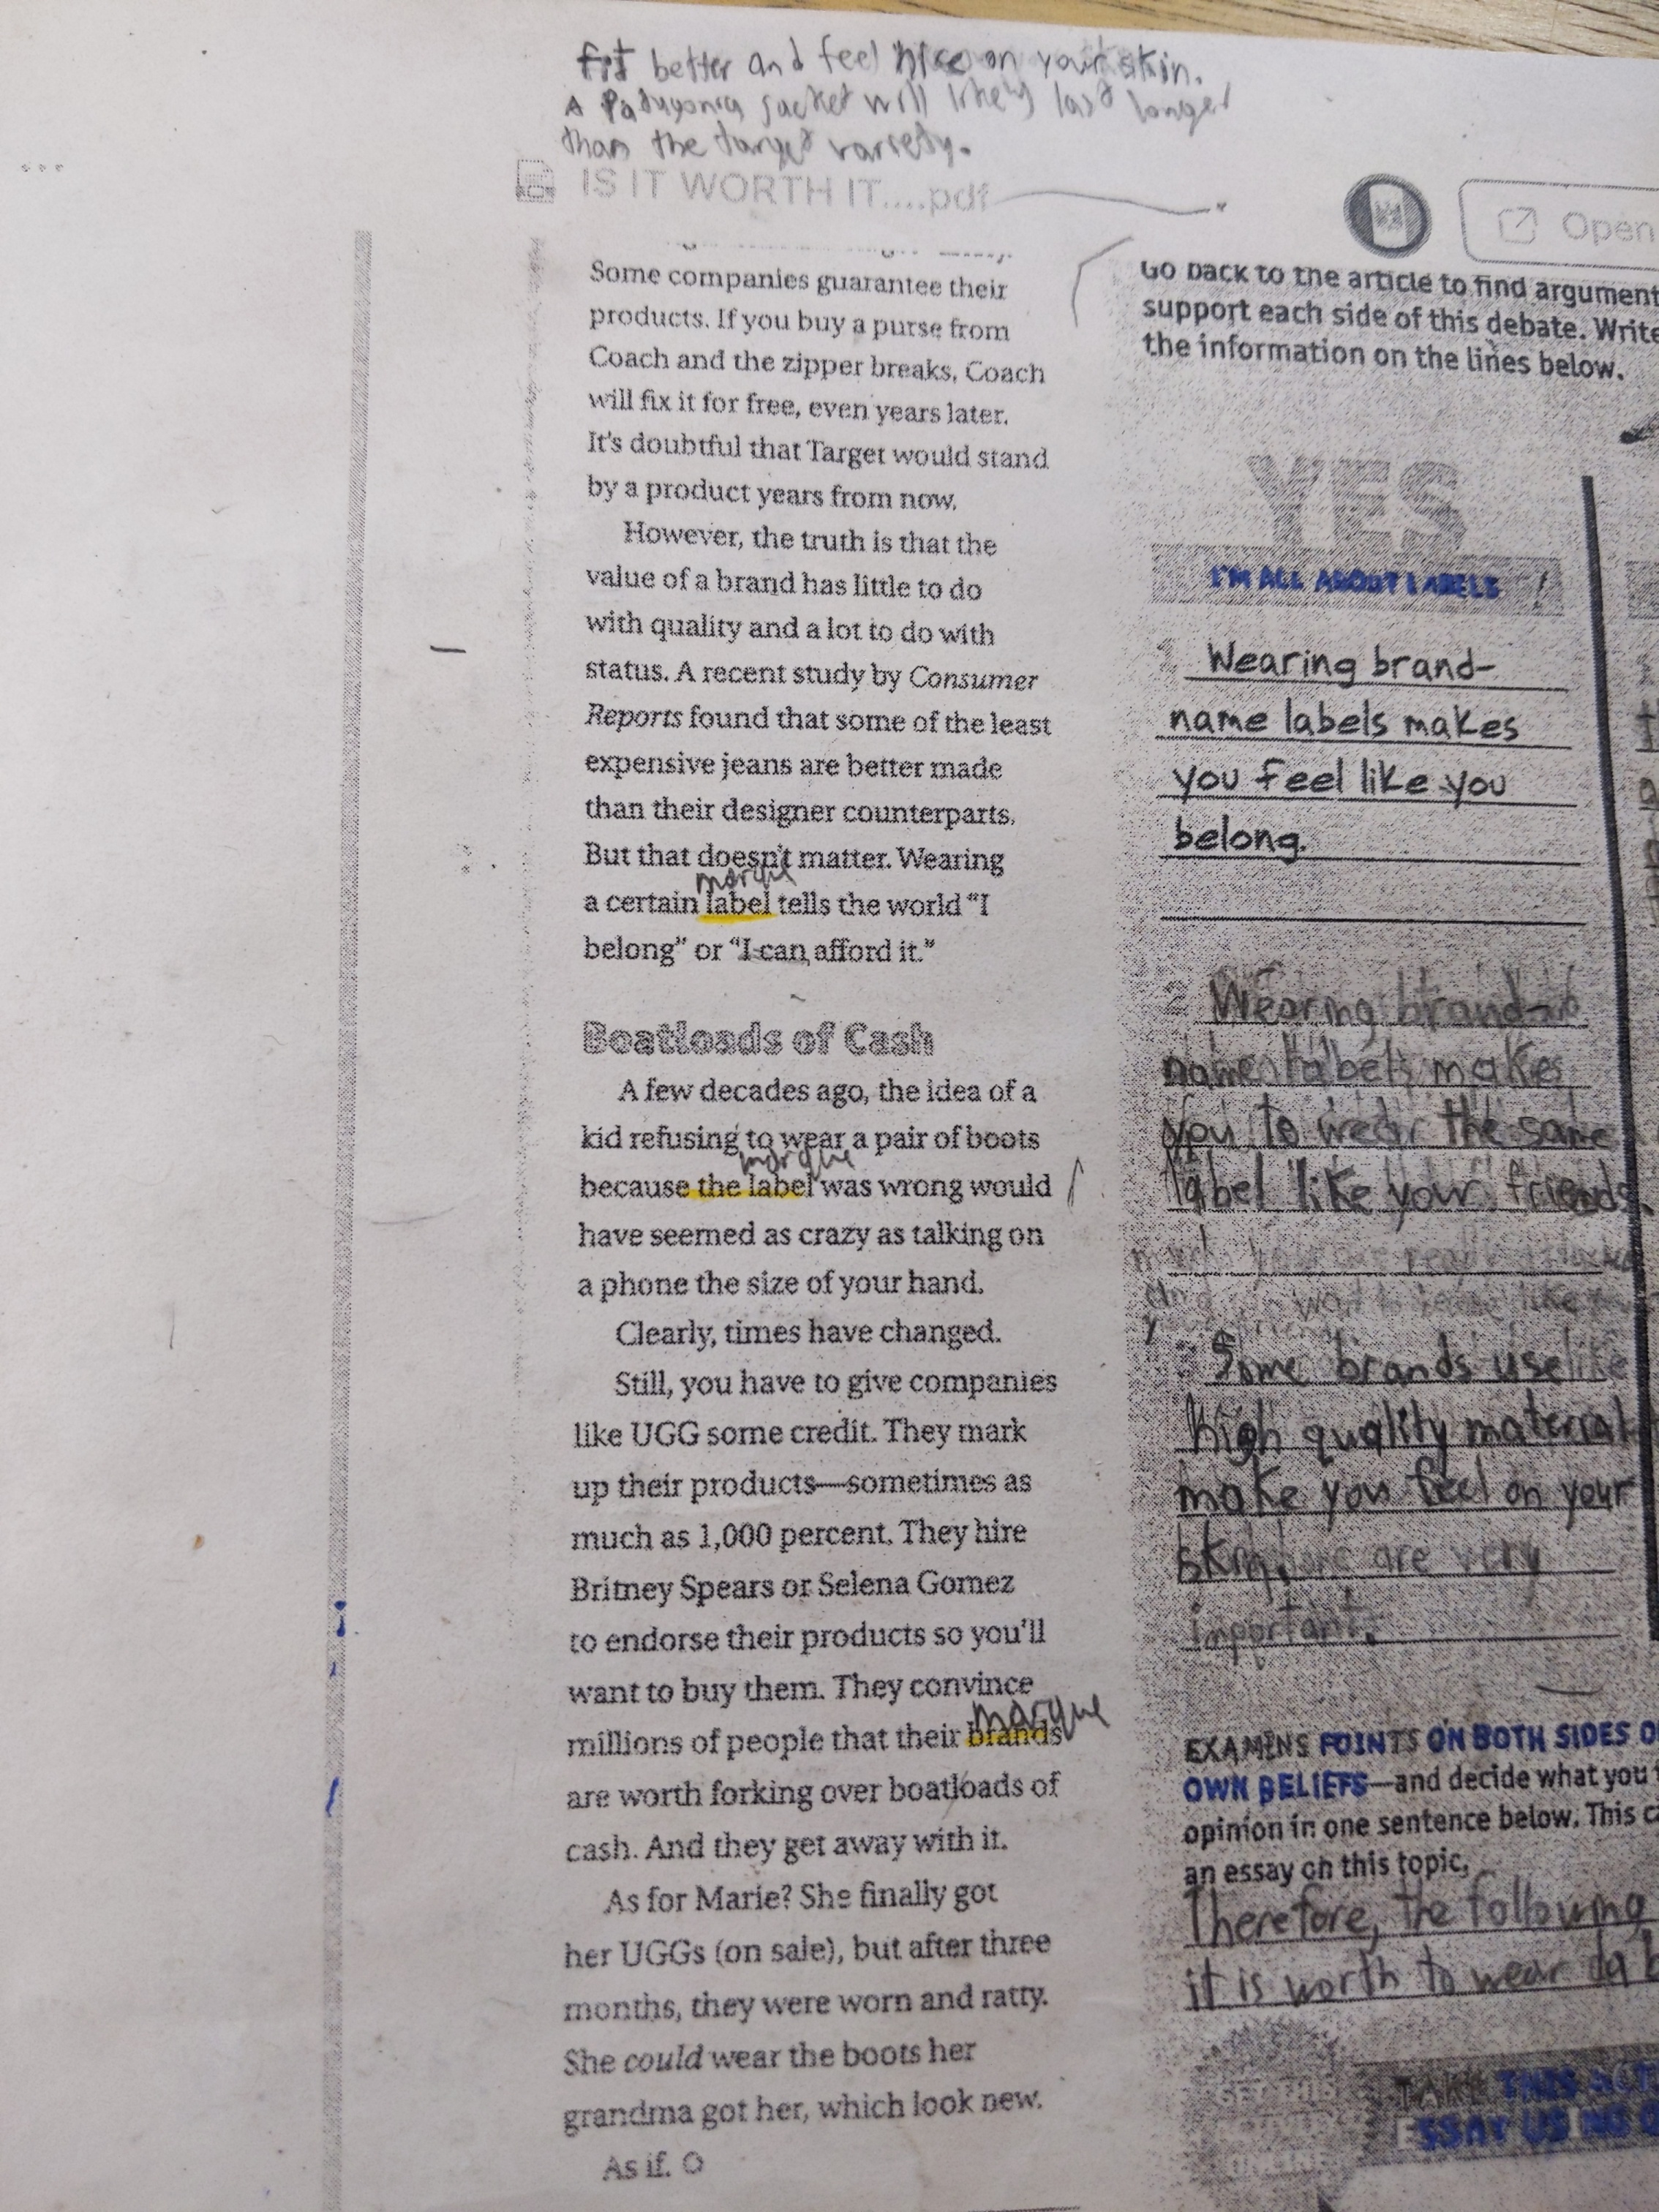 fit better and feel nice on your skin.
A Patagonia jacket will likely last longer
than the target variety.
IS IT WORTH IT....pdf
Open
Some companies guarantee their
products. If you buy a purse from
Coach and the zipper breaks, Coach
will fix it for free, even years later.
It's doubtful that Target would stand
by a product years from now.
However, the truth is that the
value of a brand has little to do
with quality and a lot to do with
status. A recent study by Consumer
Reports found that some of the least
expensive jeans are better made
than their designer counterparts.
But that doesn't matter. Wearing
marque
a certain label tells the world "I
belong" or "I can afford it."
Boatloads of Cash
A few decades ago, the idea of a
kid refusing to wear a pair of boots
marque
because the label was wrong would
have seemed as crazy as talking on
a phone the size of your hand.
Clearly, times have changed.
Still, you have to give companies
like UGG some credit. They mark
up their products—sometimes as
much as 1,000 percent. They hire
Britney Spears or Selena Gomez
to endorse their products so you'll
want to buy them. They convince
marque
millions of people that their brands
are worth forking over boatloads of
cash. And they get away with it.
As for Marie? She finally got
her UGGs (on sale), but after three
months, they were worn and ratty.
She could wear the boots her
grandma got her, which look new.
As if.
Go back to the article to find argument
support each side of this debate. Write
the information on the lines below.
YES
I'M ALL ABOUT LABELS
1. Wearing brand-
name labels makes
you feel like you
belong.
2. Wearing brand-
name labels makes
you to wear the same
label like your friends.
Some brands use like
high quality material
make you feel on your
skin, are very
important.
EXAMINE POINTS ON BOTH SIDES O
OWN BELIEFS—and decide what you
opinion in one sentence below. This c
an essay on this topic.
Therefore, the following
it is worth to wear
TAKE THIS ACT
ESSAY USING